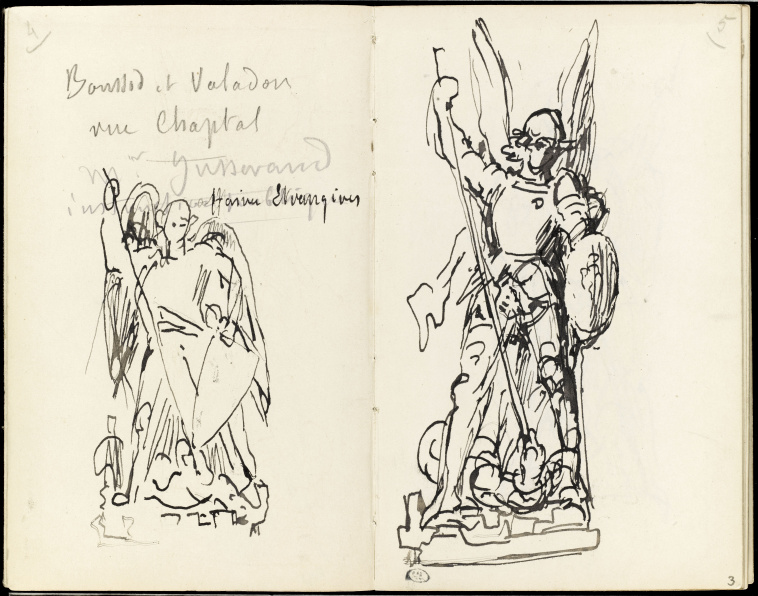 4
5
Boussod et Valadon
rue Chaptal
Mr Jusserand
Affaires Etrangères
3